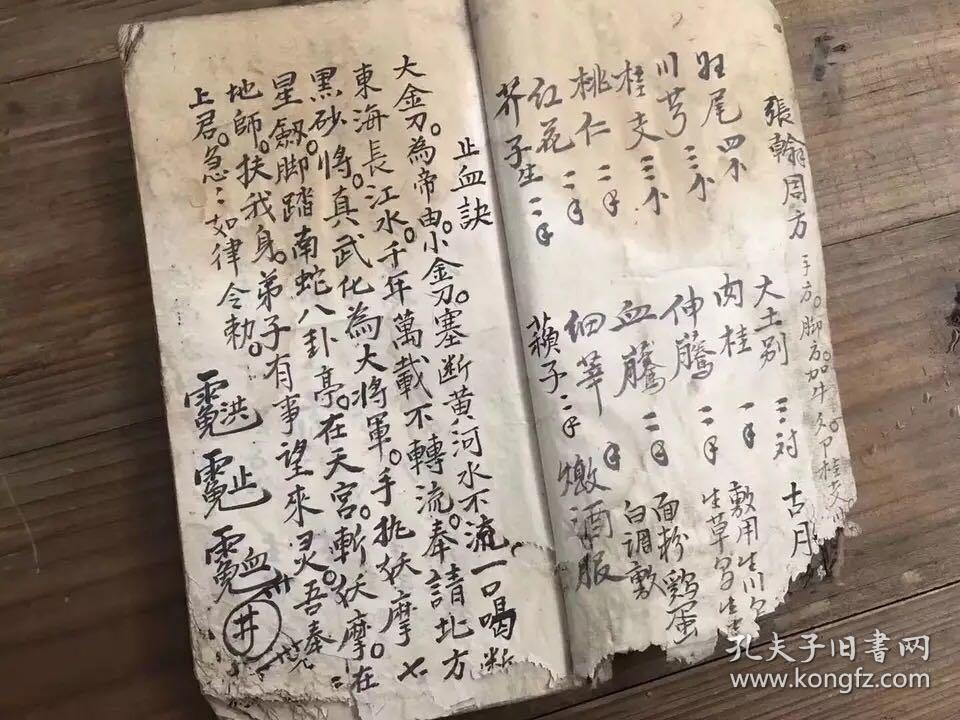 張翰周方
手方。脚方加牛夕。甲桂支
归尾 四小
川芎 三小
桂支 三小
桃仁 二
红花 二
芥子 生 二
大土别 三对
肉桂 一
伸騰 二
血騰 二
細莘
蘋子 二
燉酒服
古月
敷用生川
生草乌生
面粉鸡蛋
白调敷
止血訣
大金刀。為帝由。小金刀。塞断黄河水不流一口喝断
東海長江水。千年萬載不轉流。奉請北方
黑砂。將真武化為大將軍。手执妖摩七
星劔脚踏南蛇八卦亭。在天宮。斬妖摩。在
地師。扶我身。弟子有事望來灵。吾奉
上君。急:如律令勅。
洪
止
血
井
孔夫子旧书网
www.kongfz.com